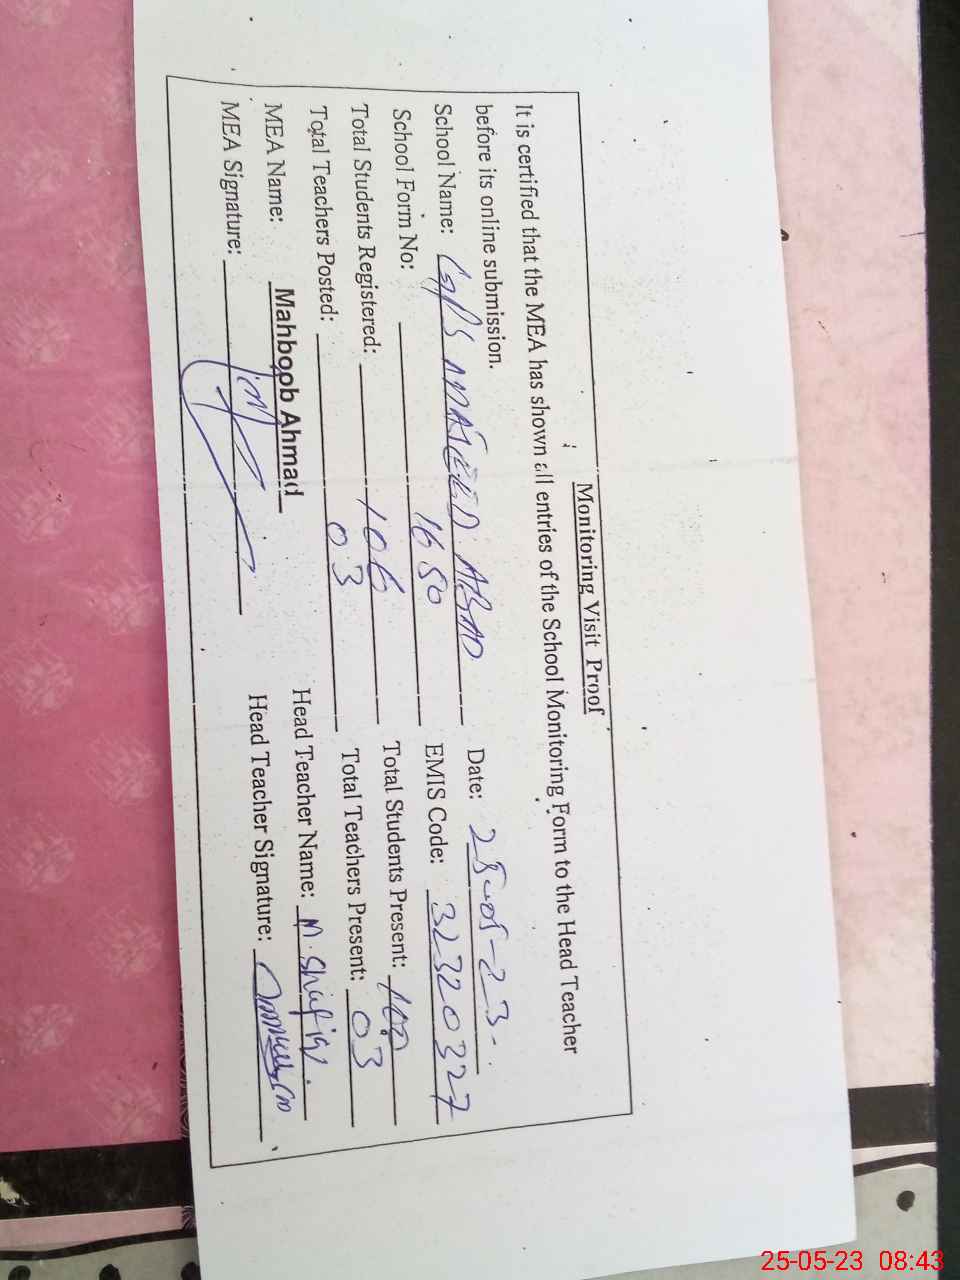 Monitoring Visit Proof
It is certified that the MEA has shown all entries of the School Monitoring Form to the Head Teacher
before its online submission.
School Name: GPS AMJEED ABAD Date: 25-05-23
School Form No: 1650 EMIS Code: 32320327
Total Students Registered: 106 Total Students Present:
Total Teachers Posted: 03 Total Teachers Present: 03
MEA Name: Mahboob Ahmad Head Teacher Name: M. Shafiq.
MEA Signature: Head Teacher Signature:
25-05-23 08:43